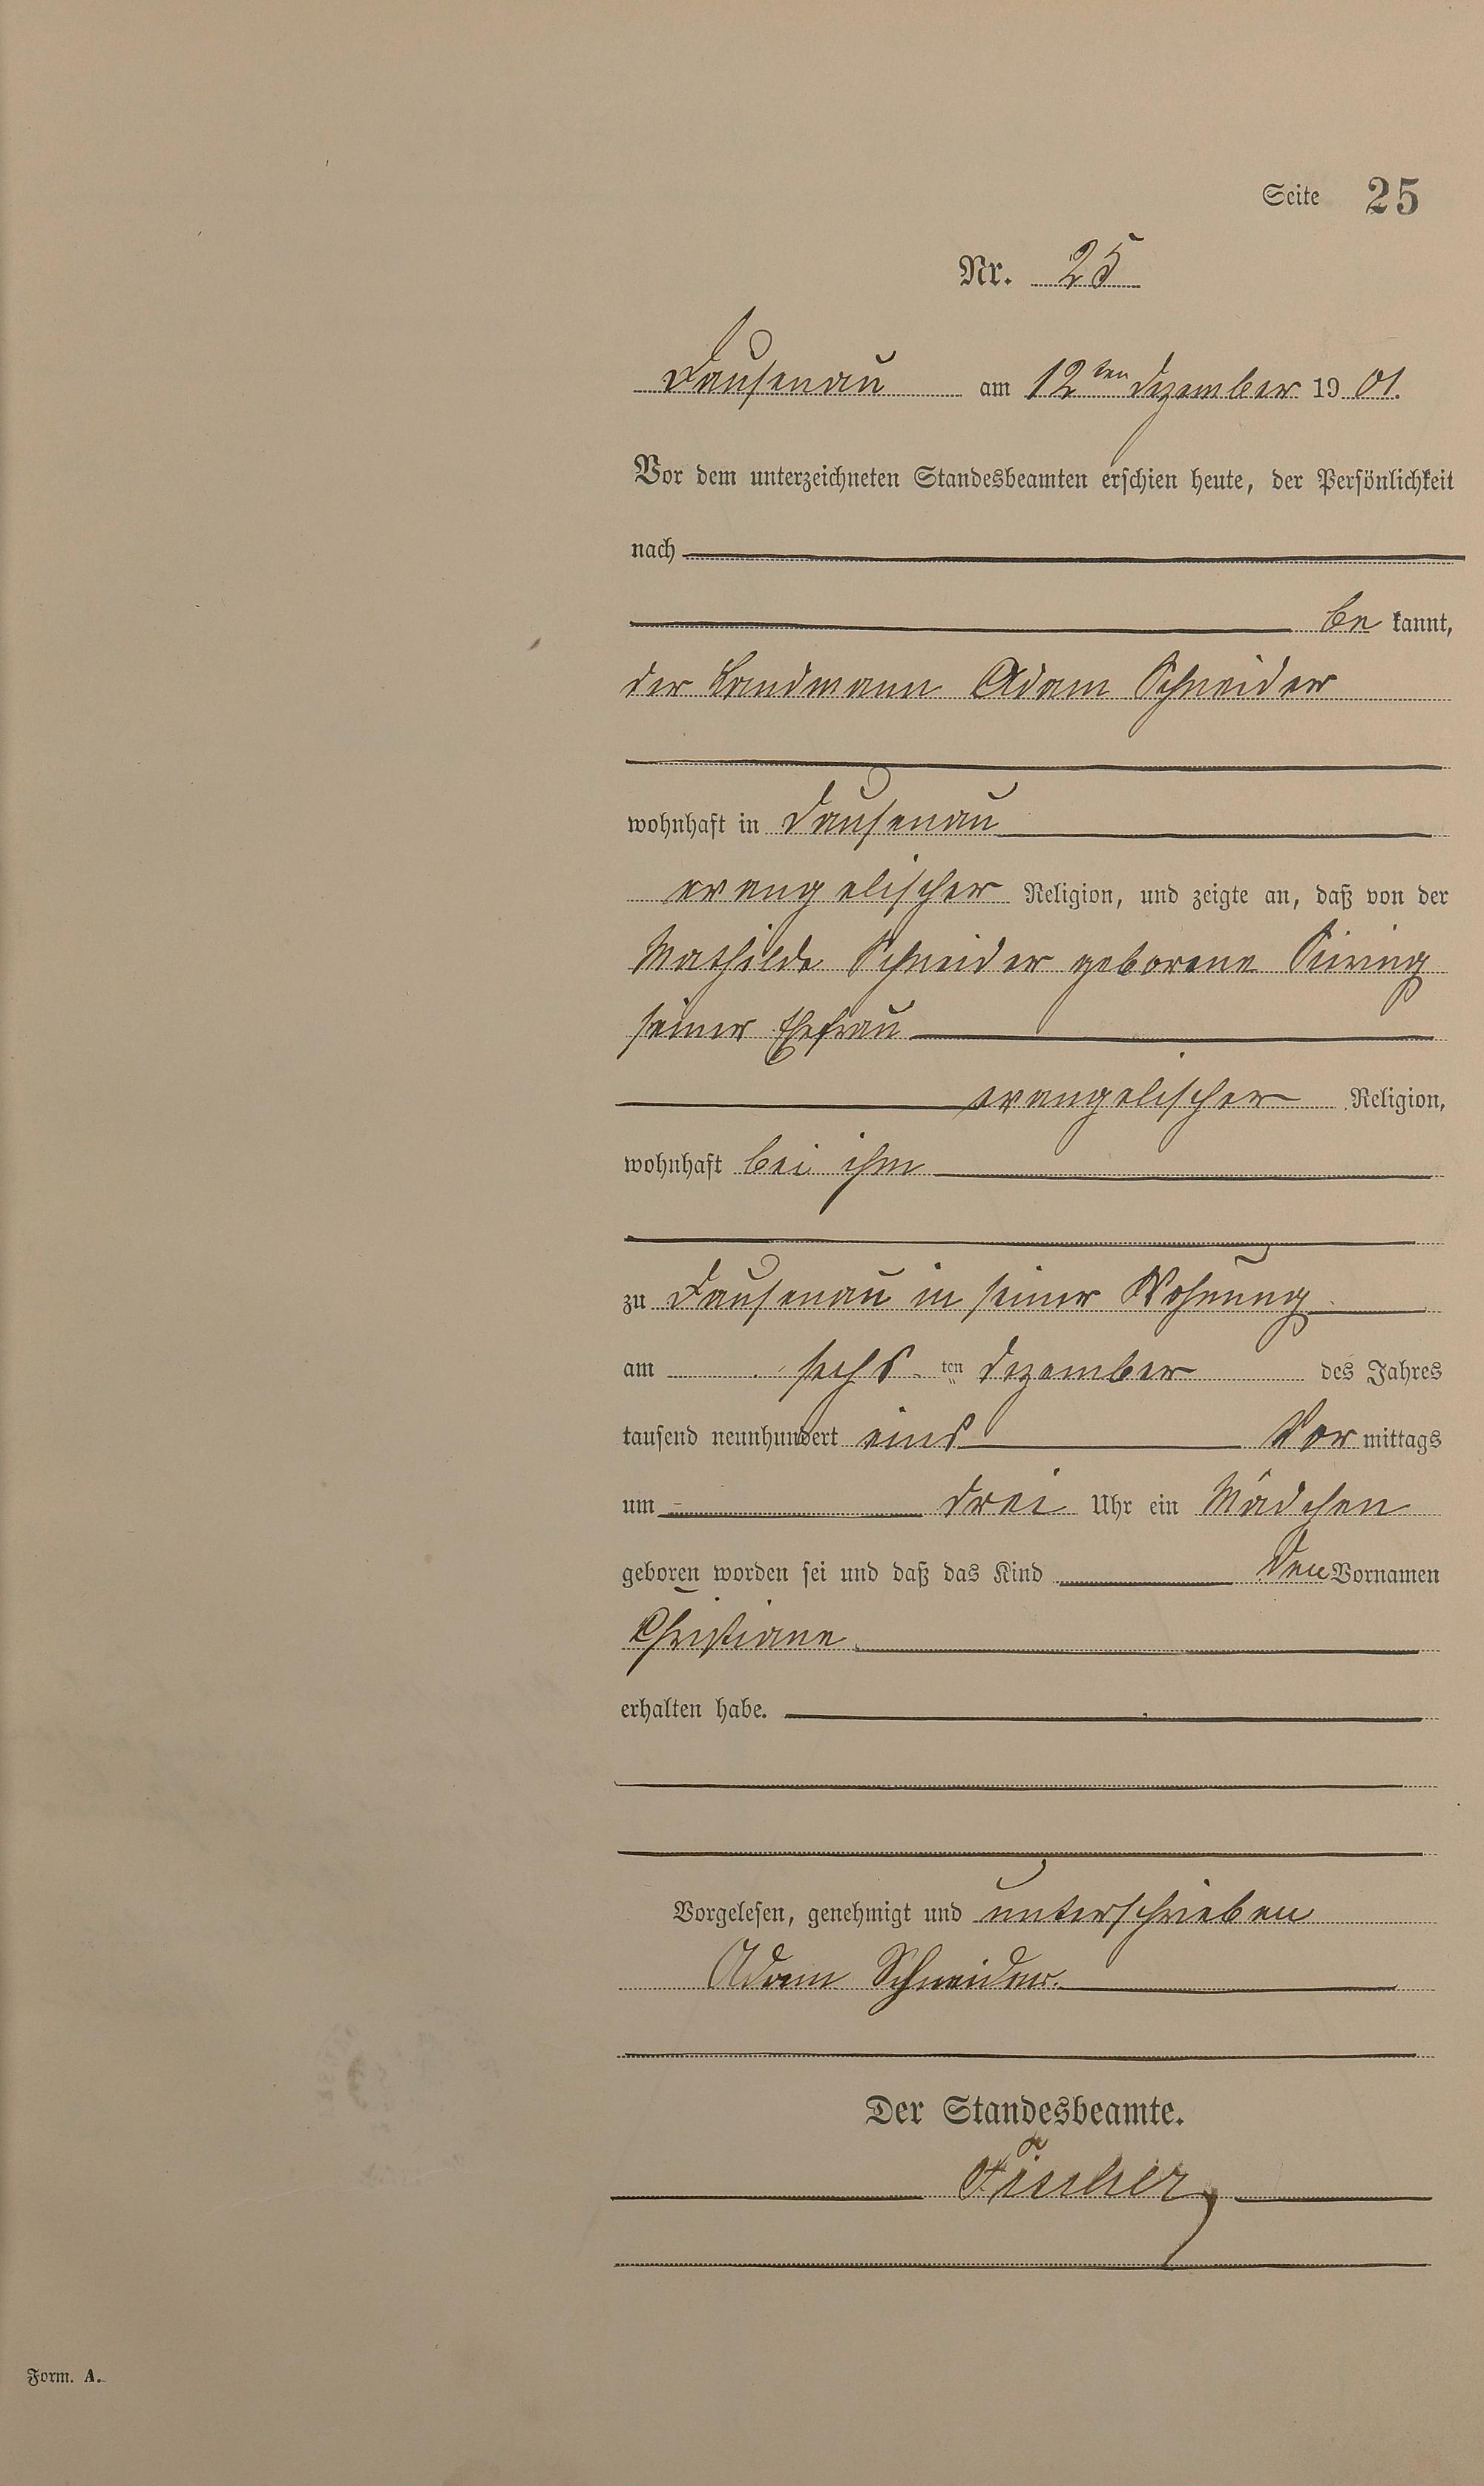 Seite 25
Nr. 25
Dausenau am 12ten Dezember 1901.
Vor dem unterzeichneten Standesbeamten erschien heute, der Persönlichkeit
nach
be kannt,
der Landmann Adam Schneider
wohnhaft in Dausenau
evangelischer Religion, und zeigte an, daß von der
Mathilde Schneider geborene
seiner Ehefrau
evangelischer Religion,
wohnhaft bei ihm
zu Dausenau in seiner Wohnung
am sechs ten Dezember des Jahres
tausend neunhundert eins Vor mittags
um drei Uhr ein Mädchen
geboren worden sei und daß das Kind den Vornamen
Christiane
erhalten habe.
Vorgelesen, genehmigt und unterschrieben
Adam Schneider.
Der Standesbeamte.
Fischer
Form. A.